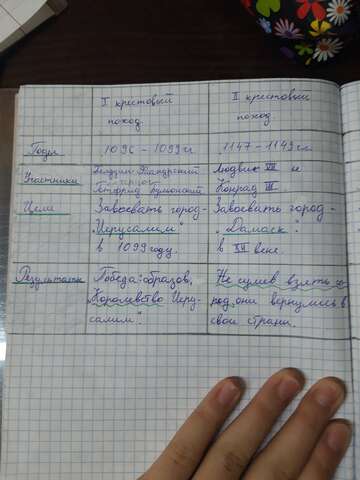 I крестовый
поход
II крестовый
поход
Годы
1096 - 1099 гг.
1147 - 1149 гг.
Участники
Готфрид Бульонский
Людвик VII и
Конрад III
Цели
Завоевать город-
"Иерусалим"
в 1099 году.
Завоевать город-
"Дамаск"
в XII веке.
Результаты
Победа: образов.
"Королевство Иеру-
салим".
Не сумев взять го-
род, они вернулись в
свои страны.